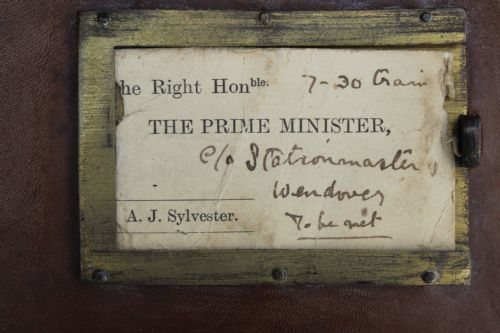 he Right Honble. 7-30 train
THE PRIME MINISTER,
C/o Stationmaster,
Wendover
A. J. Sylvester. To be met